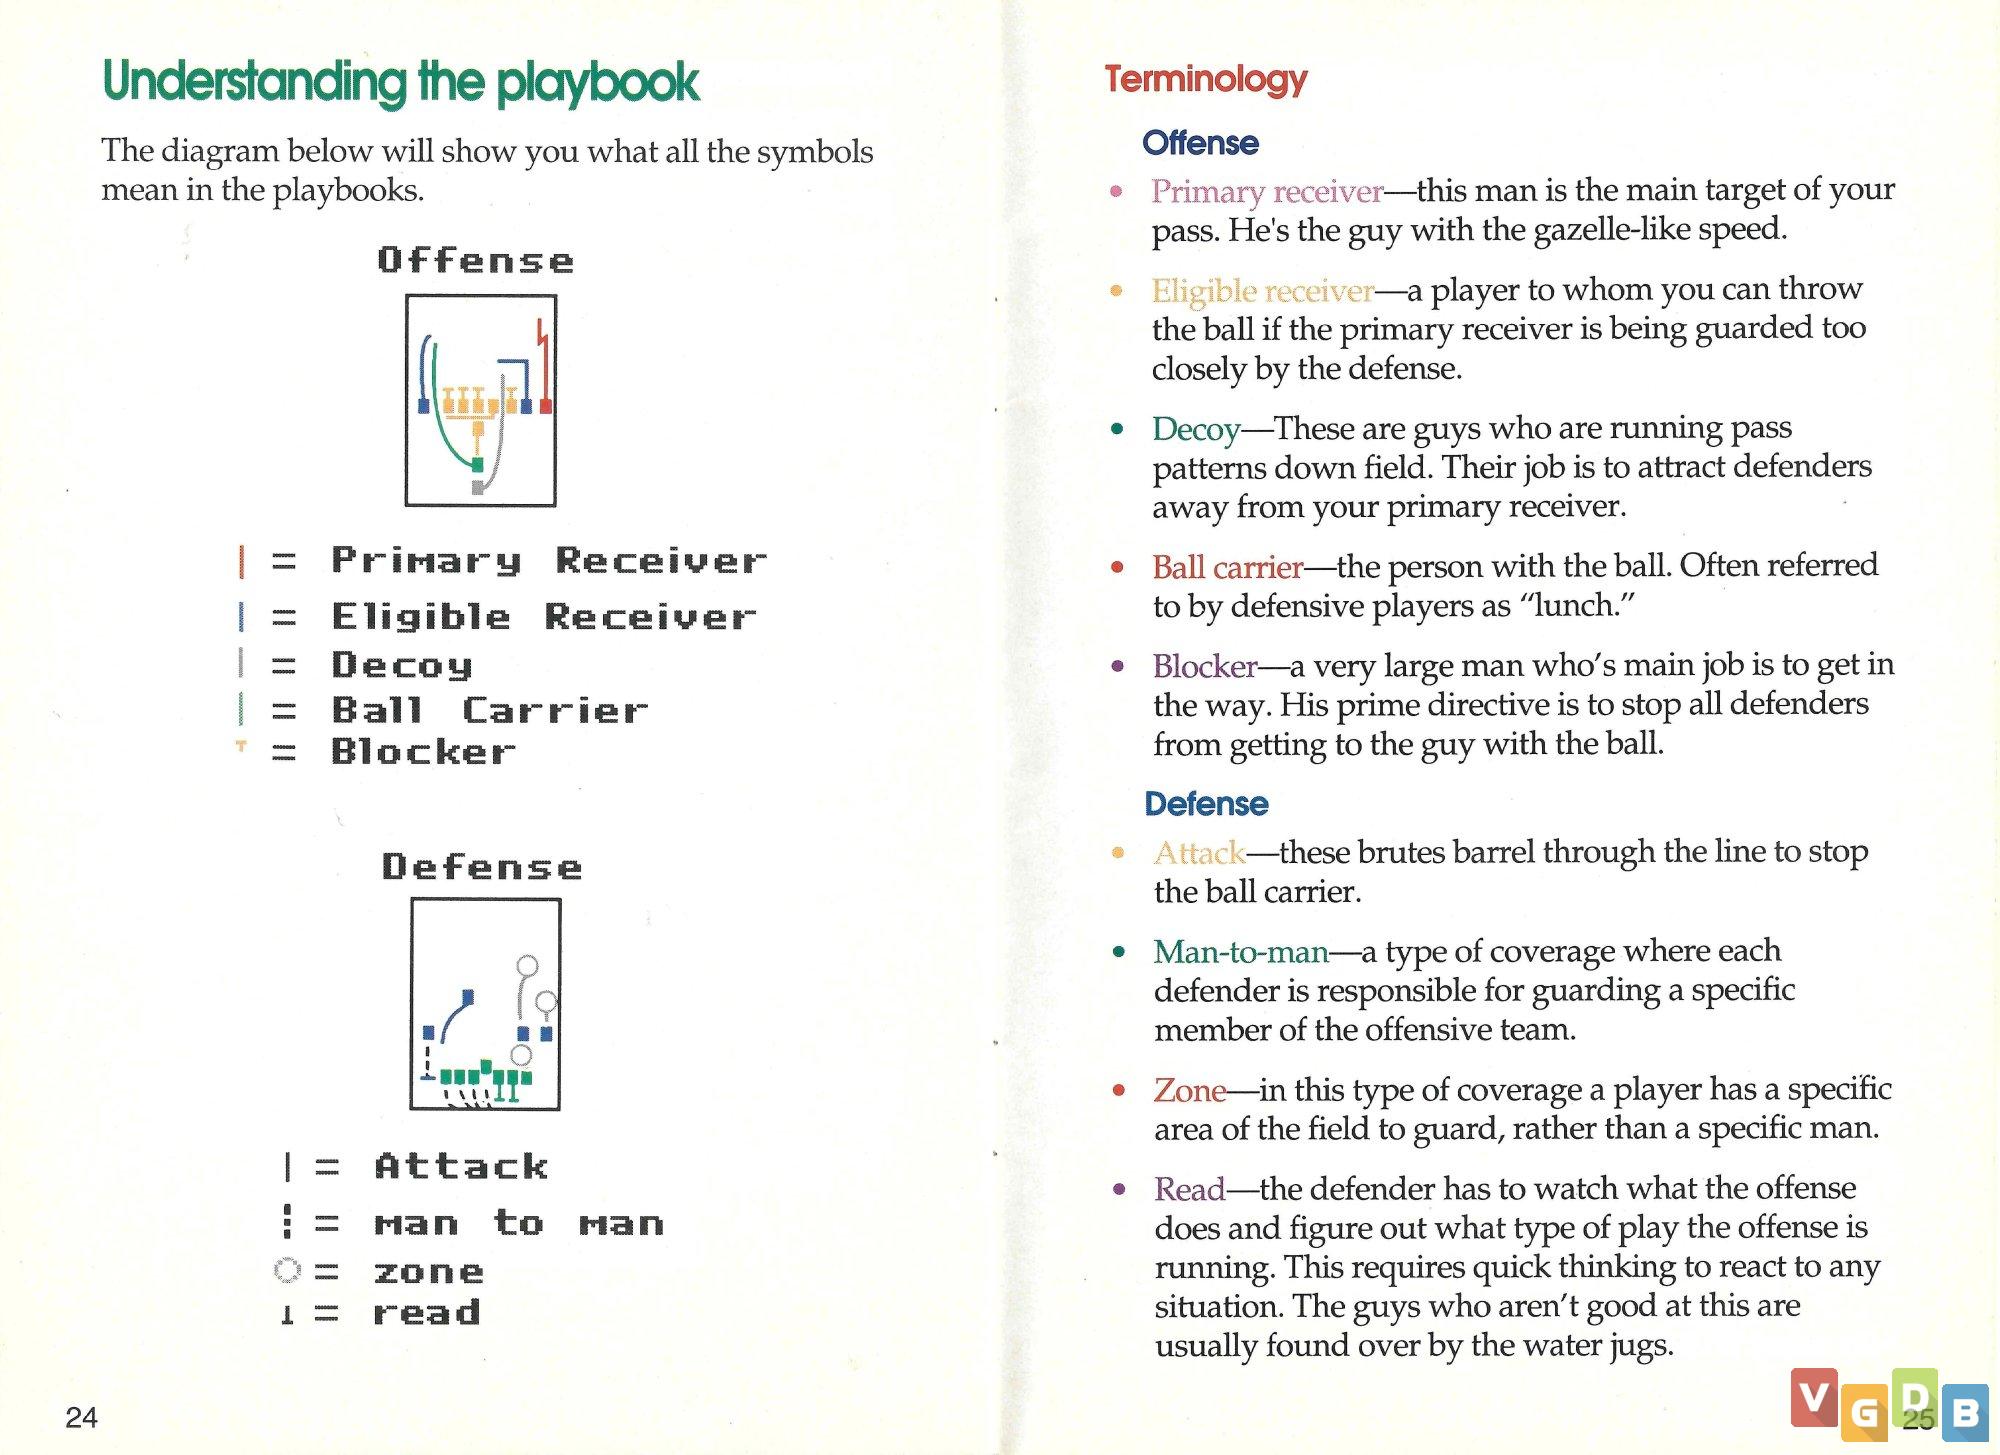 Understanding the playbook
The diagram below will show you what all the symbols
mean in the playbooks.
Offense
| = Primary Receiver
| = Eligible Receiver
| = Decoy
| = Ball Carrier
T = Blocker
Defense
| = Attack
⋮ = man to man
= zone
⊥ = read
24
Terminology
Offense
• Primary receiver—this man is the main target of your
pass. He's the guy with the gazelle-like speed.
• Eligible receiver—a player to whom you can throw
the ball if the primary receiver is being guarded too
closely by the defense.
• Decoy—These are guys who are running pass
patterns down field. Their job is to attract defenders
away from your primary receiver.
• Ball carrier—the person with the ball. Often referred
to by defensive players as “lunch.”
• Blocker—a very large man who’s main job is to get in
the way. His prime directive is to stop all defenders
from getting to the guy with the ball.
Defense
• Attack—these brutes barrel through the line to stop
the ball carrier.
• Man-to-man—a type of coverage where each
defender is responsible for guarding a specific
member of the offensive team.
• Zone—in this type of coverage a player has a specific
area of the field to guard, rather than a specific man.
• Read—the defender has to watch what the offense
does and figure out what type of play the offense is
running. This requires quick thinking to react to any
situation. The guys who aren’t good at this are
usually found over by the water jugs.
25
VGDB